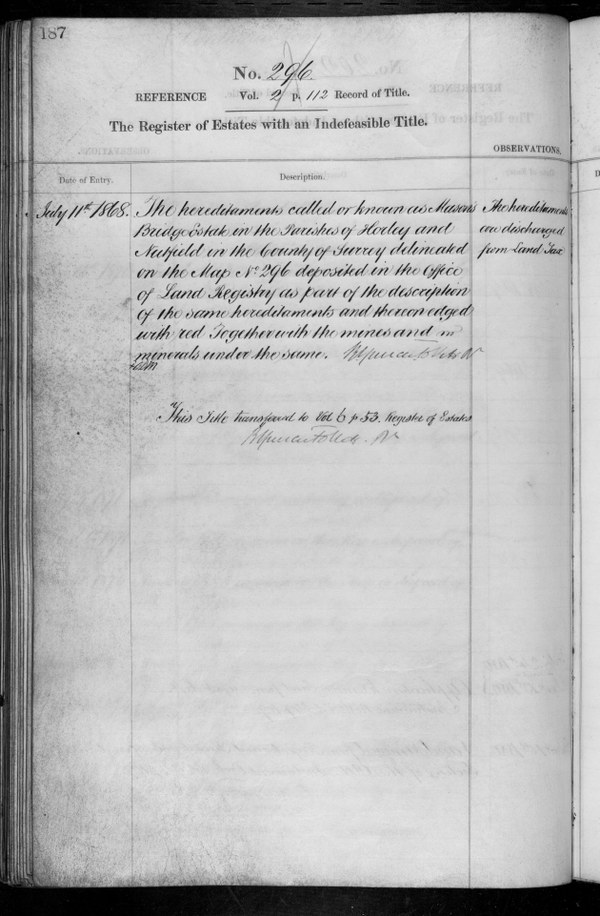 187
No. 296.
REFERENCE Vol. 2 p. 112 Record of Title.
The Register of Estates with an Indefeasible Title.
OBSERVATIONS.
Date of Entry.
Description.
July 11th 1868.
The hereditaments called or known as Masons
Bridge Estate in the Parishes of Horley and
Nutfield in the County of Surrey delineated
on the Map No 296 deposited in the Office
of Land Registry as part of the description
of the same hereditaments and thereon edged
with red Together with the mines and
minerals under the same.
The hereditaments
are discharged
from Land Tax
This Title transferred to Vol 6 p 53. Register of Estates